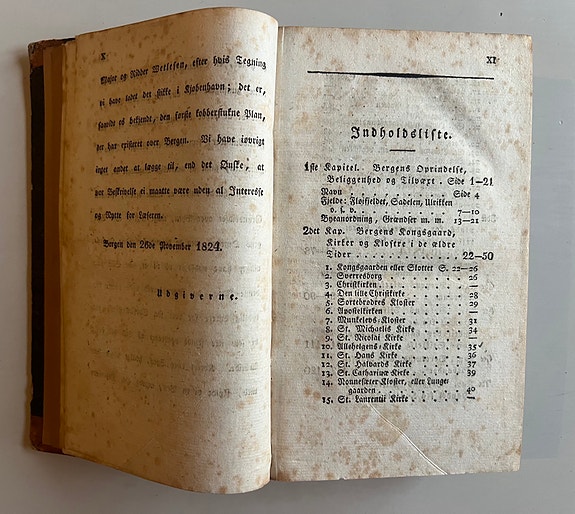 X
Major og Ridder Wetlesen, efter hvis Tegning
vi have ladet det stikke i Kjøbenhavn; det er,
saavidt os bekjendt, den første kobberstukne Plan,
der har existeret over Bergen. Vi have iøvrigt
intet andet at lægge til, end det Ønske, at
vor Beskrivelse ei maatte være uden al Interesse
og Nytte for Læseren.
Bergen den 26de November 1824.
Udgiverne.
XI
Indholdsliste.
1ste Kapitel. Bergens Oprindelse,
Beliggenhed og Tilvæxt . Side 1—21
Navn . . . . . . . . Side 4
Fjelde: Fløifjeldet, Sadelen, Ulriken
o. s. v. . . . . . . . . 7—10
Byeanordning, Grændser m. m. 13—21
2det Kap. Bergens Kongsgaard,
Kirker og Klostre i de ældre
Tider . . . . . . . . 22—50
1. Kongsgaarden eller Slottet S. 22—26
2. Sverresborg . . . . . . 26
3. Christkirken . . . . . . —
4. Den lille Christkirke . . . . 28
5. Sortebrødres Kloster . . . . 29
6. Apostelkirken . . . . . . —
7. Munkelivs Kloster . . . . 31
8. St. Michaelis Kirke . . . . 34
9. St. Nicolai Kirke . . . . —
10. Allehelgens Kirke . . . . 35
11. St. Hans Kirke . . . . . 36
12. St. Halvards Kirke . . . . 37
13. St. Catharinæ Kirke . . . . 39
14. Nonnesæter Kloster, eller Lunge-
gaarden . . . . . . . 40
15. St. Laurentii Kirke . . . . —